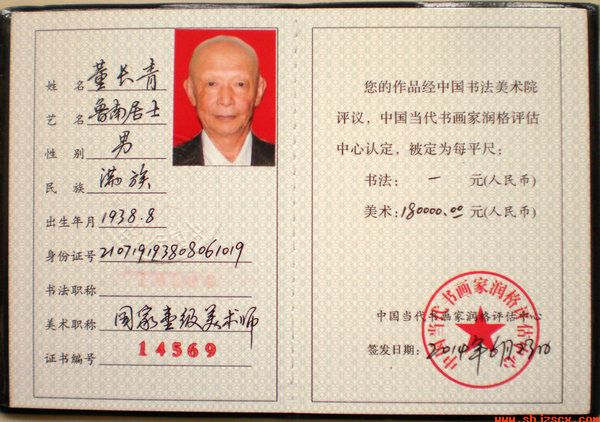 姓名 董长青
艺名 鲁南居士
性别 男
民族 满族
出生年月 1938.8
身份证号 210719193808061019
书法职称
美术职称 国家壹级美术师
证书编号 14569
您的作品经中国书法美术院
评议，中国当代书画家润格评估
中心认定，被定为每平尺：
书法： 一 元(人民币)
美术：180000.00 元(人民币)
中国当代书画家润格评估中心
签发日期：2014年6月23日
中国当代书画家润格评估中心
www.shjzscx.com